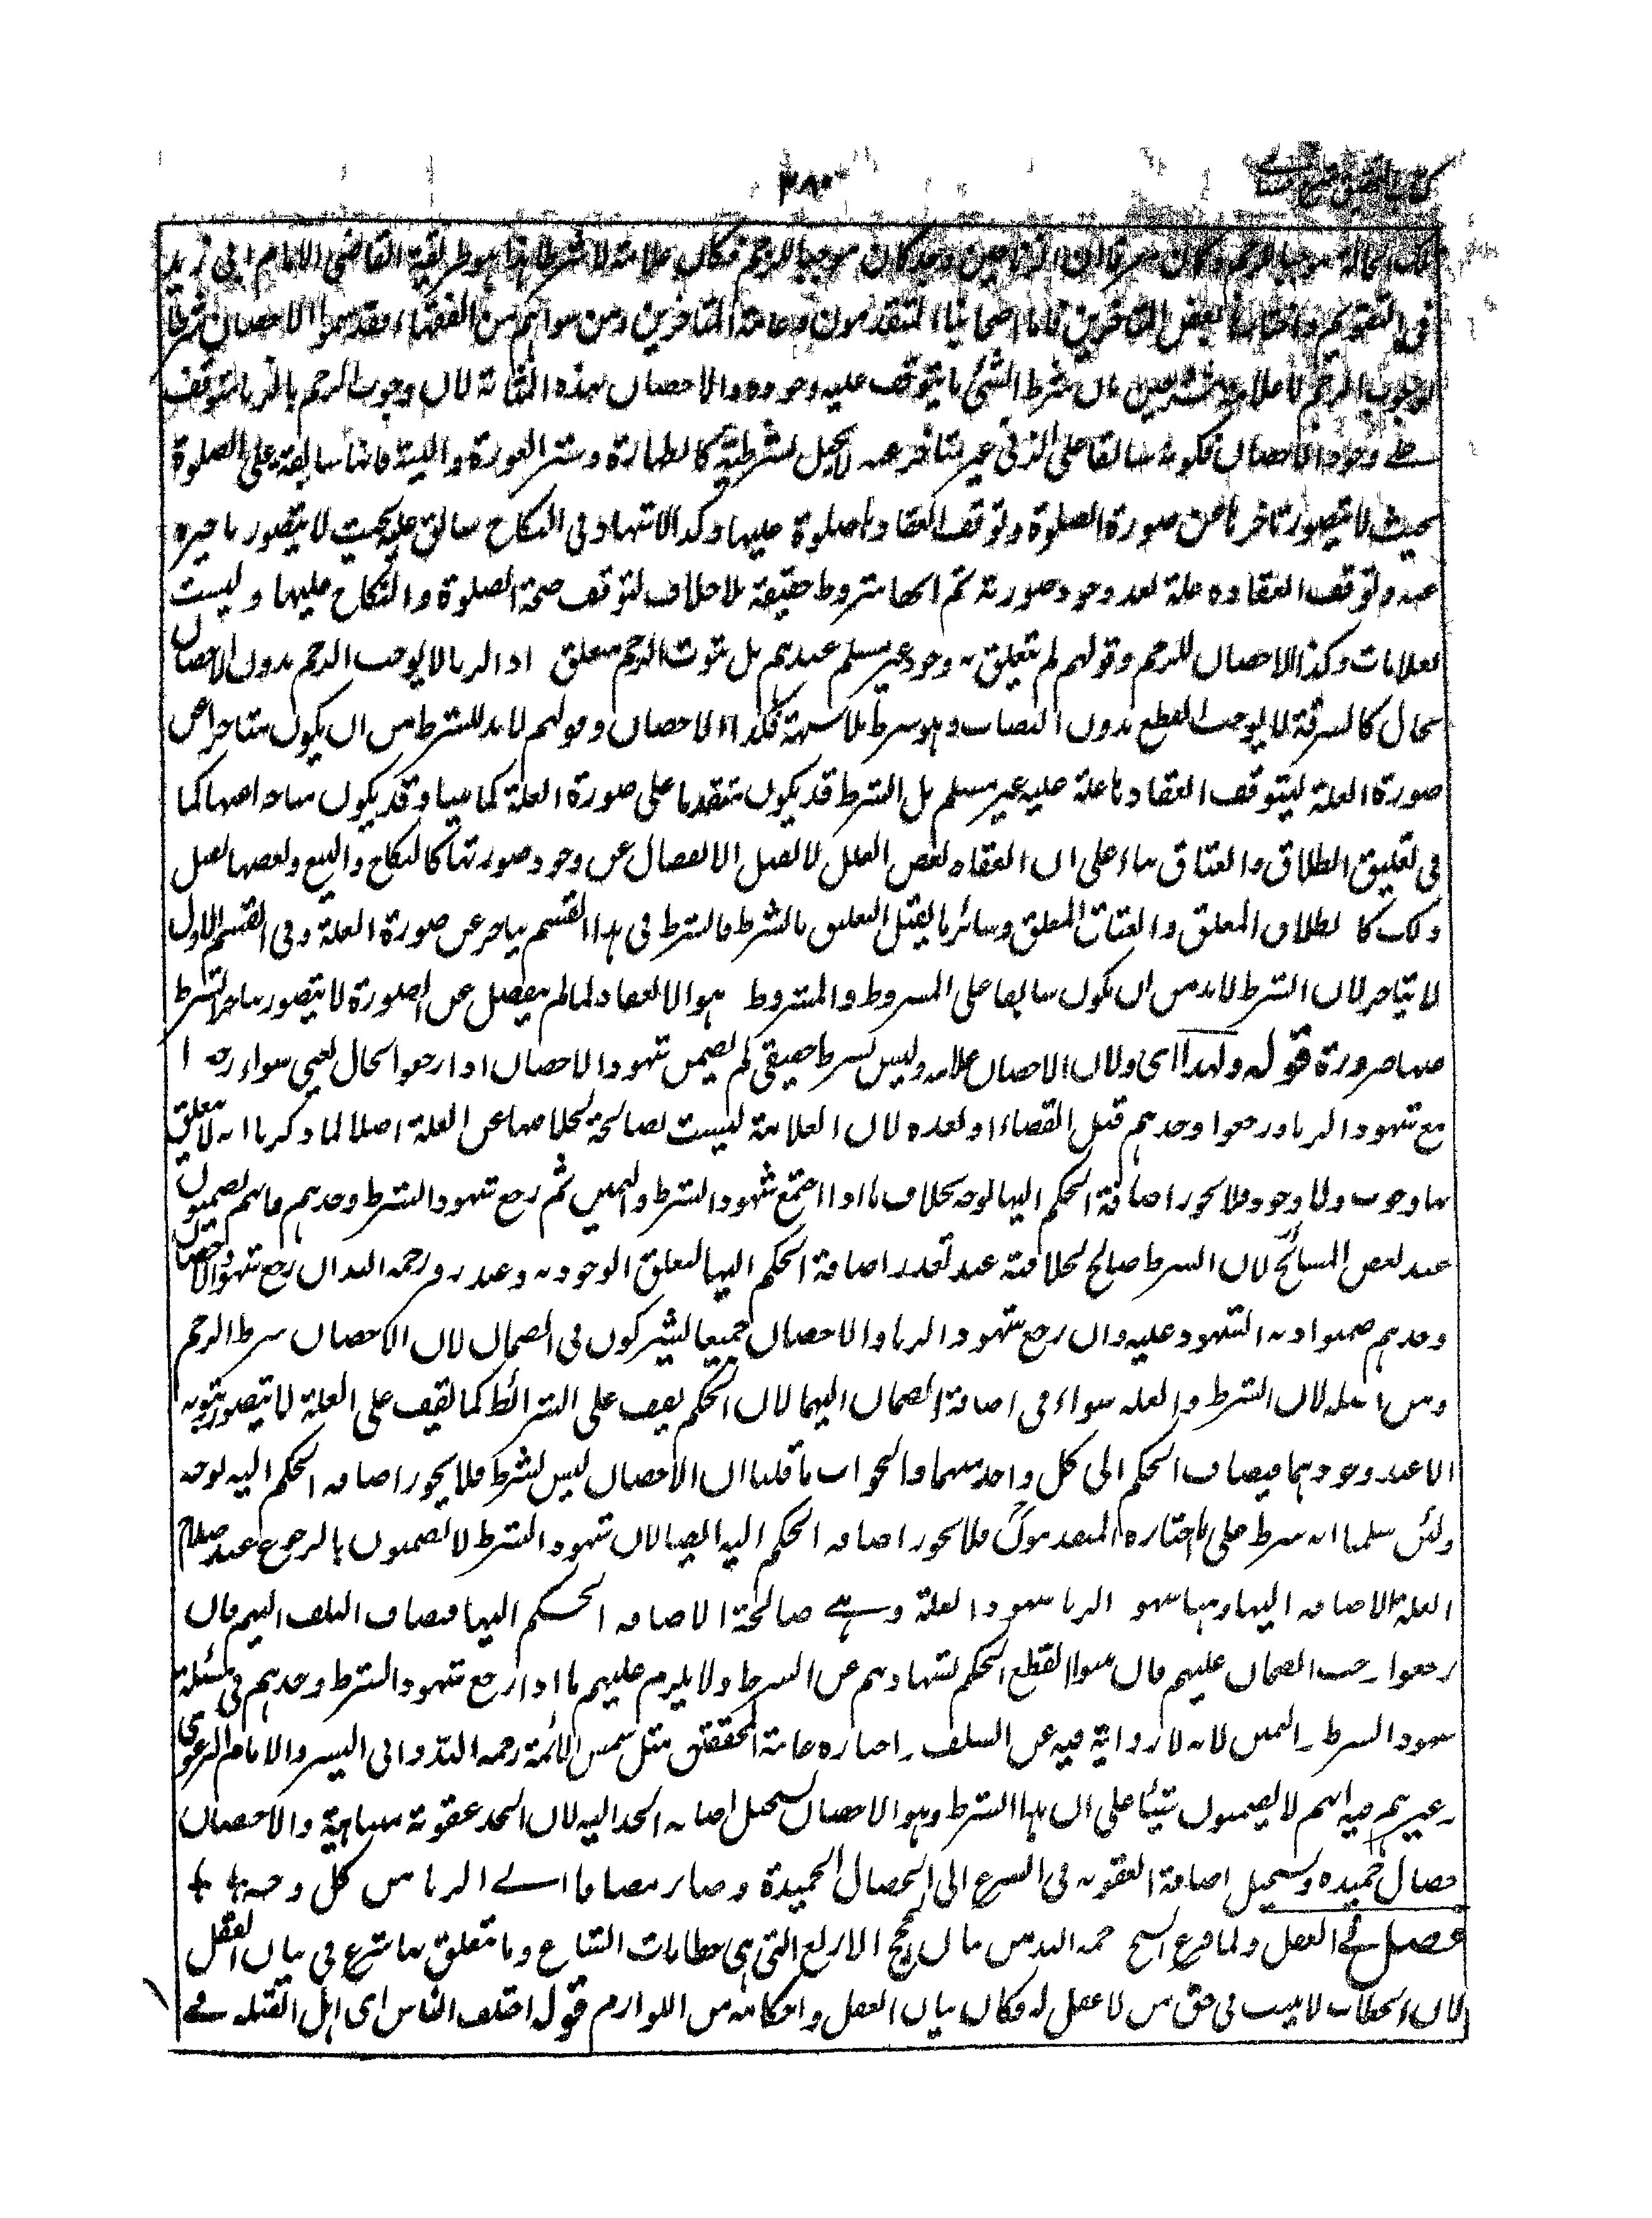 كتاب التحقيق شرح حسامي
٣٨٠
تلك الحالة موجبا للرجم وكان معرفا ان الزنا حين وجد كان موجبا للرجم فكان علامة لا شرطا هذا هو طريقة القاضى الامام ابى زيد
فى التقويم واختارها بعض المتاخرين فاما اصحابنا المتقدمون وعامة المتاخرين ومن سواهم من الفقهاء فقد سموا الاحصان شرطا
لوجوب الرجم لا علامة بان شرط الشئ ما يتوقف عليه وجوده والاحصان بهذه المثابة لان وجوب الرجم بالزنا متوقف
على وجود الاحصان فكونه سابقا على الزنى غير متاخر عنه لا يخل بشرطيته كالطهارة وستر العورة والنية فانها سابقة على الصلوة
بحيث لا يتصور تاخرها عن صورة الصلوة وتوقف انعقادها صلوة عليها وكذا الاشهاد فى النكاح سابق عليه بحيث لا يتصور تاخيره
عنه وتوقف انعقاده علة بعد وجود صورته ثم انها شروط حقيقة بلا خلاف لتوقف صحة الصلوة والنكاح عليها وليست
بعلامات وكذا الاحصان للرجم وقولهم لم يتعلق به وجود غير مسلم عندهم بل ثبوت الرجم متعلق اذ الزنا لا يوجب الرجم بدون الاحصان
بحال كالسرقة لا يوجب القطع بدون النصاب وهو شرط بلا شبهة فكذا الاحصان وقولهم لا بد للشرط من ان يكون متاخرا عن
صورة العلة ليتوقف انعقادها علة عليه غير مسلم بل الشرط قد يكون متقدما على صورة العلة كما بينا وقد يكون متاخرا عنها كما
فى تعليق الطلاق والعتاق بناء على ان انعقاد بعض العلل لا يقبل الانفصال عن وجود صورتها كالنكاح والبيع وبعضها يقبل
ذلك كالطلاق المعلق والعتاق المعلق وسائر ما يقبل التعليق بالشرط فالشرط فى هذا القسم يتاخر عن صورة العلة وفى القسم الاول
لا يتاخر لان الشرط لا بد من ان يكون سابقا على المشروط والمشروط هو الانعقاد لما لم ينفصل عن الصورة لا يتصور تاخر الشرط
عنها ضرورة قوله ولهذا اى ولان الاحصان علامة وليس بشرط حقيقى لم يضمن شهود الاحصان اذا رجعوا بحال يعنى سواء رجعوا
مع شهود الزنا ورجعوا وحدهم قبل القضاء او بعده لان العلامة ليست بصالحة لخلافتها عن العلة اصلا لما ذكرنا انه لا يتعلق
بها وجوب ولا وجود فلا يجوز اضافة الحكم اليها بوجه بخلاف ما اذا اجتمع شهود الشرط واليمين ثم رجع شهود الشرط وحدهم فانهم يضمنون
عند بعض المشائخ لان الشرط صالح لخلافته عند تعذر اضافة الحكم اليها لتعلق الوجود به وعند زفر رحمه الله ان رجع شهود الاحصان
وحدهم ضمنوا دية المشهود عليه وان رجع شهود الزنا والاحصان جميعا يشتركون فى الضمان لان الاحصان شرط الرجم
ومن اصله لان الشرط والعلة سواء فى اضافة الضمان اليهما لان الحكم يقف على الشرائط كما يقف على العلة لا يتصور ثبوته
الا عند وجودهما فيضاف الحكم الى كل واحد منهما والجواب ما قلنا ان الاحصان ليس بشرط فلا يجوز اضافة الحكم اليه بوجه
ولئن سلمنا انه شرط على ما اختاره المتقدمون فلا يجوز اضافة الحكم اليه ايضا لان شهود الشرط لا يضمنون بالرجوع عند صلاح
العلة لاضافة اليها وههنا شهود الزنا شهود العلة وهى صالحة لاضافة الحكم اليها فيضاف التلف اليهم فان
رجعوا وجب الضمان عليهم فان ثبتوا انقطع الحكم بشهادتهم عن الشرط ولا يلزم عليهم ما اذا رجع شهود الشرط وحدهم فى مسئلة
شهود الشرط واليمين لانه لا رواية فيه عن السلف واختاره عامة المحققين مثل شمس الائمة رحمه الله وابى اليسر والامام البرغرى
وغيرهم فيه انهم لا يضمنون شيئا على ان هذا الشرط وهو الاحصان يستحيل اضافة الحد اليه لان الحد عقوبة متناهية والاحصان
خصال حميدة ويستحيل اضافة العقوبة فى الشرع الى الخصال الحميدة وصار مضافا الى الزنا من كل وجه
فصل فى العقل ولما فرغ الشيخ رحمه الله من بيان الحجج الاربع التى هى خطابات الشارع وما يتعلق بها شرع فى بيان العقل
لان الخطاب لا يثبت فى حق من لا عقل له فكان بيان العقل واحكامه من اللوازم قوله اختلف الناس اى اهل القبلة فى